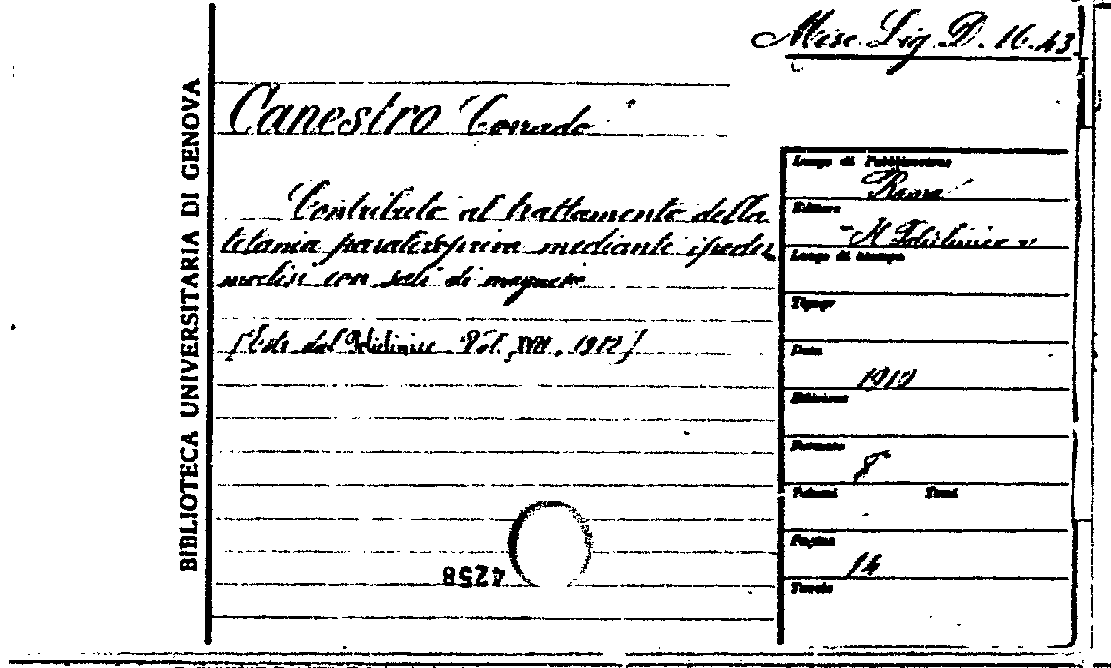 Misc. Lig. D. 16.43
BIBLIOTECA UNIVERSITARIA DI GENOVA
Canestro Corrado
Contributo al trattamento della
tetania paratireopriva mediante ipoder
moclisi con sali di magnesio
[Estr. dal Policlinico Vol. XVII, 1910]
Luogo di Pubblicazione
Roma
Editore
"Il Policlinico"
Luogo di stampa
Tipogr.
Data
1910
Edizione
Formato
8°
Volumi Tomi
Pagine
14
Tavole
4258